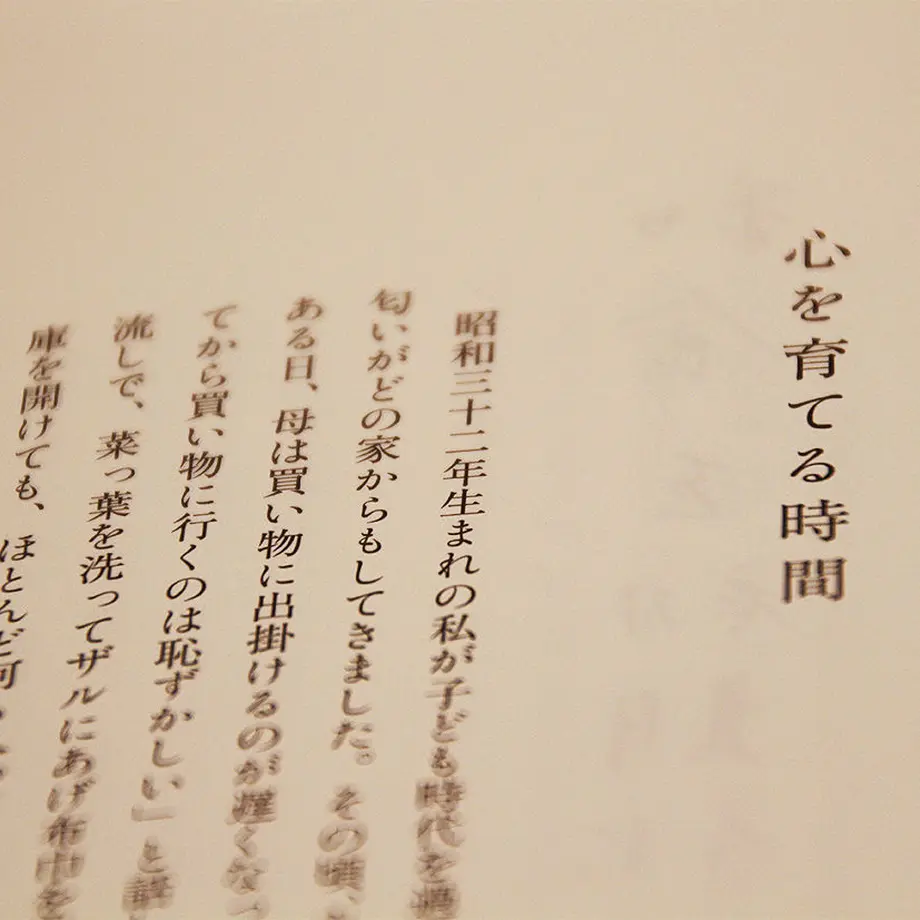 心を育てる時間
昭和三十二年生まれの私が子ども時代を過
匂いがどの家からもしてきました。その頃、
ある日、母は買い物に出掛けるのが遅くなっ
てから買い物に行くのは恥ずかしい」と
流しで、菜っ葉を洗ってザルにあげ布巾を
庫を開けても、
ほとんど何